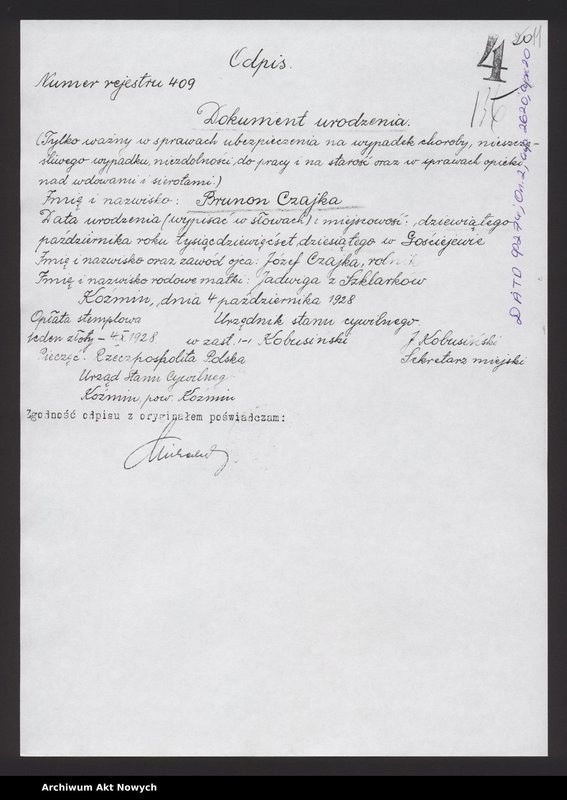 Odpis.
4
Numer rejestru 409
Dokument urodzenia.
(Tylko ważny w sprawach ubezpieczenia na wypadek choroby, nieszczę-
śliwego wypadku, niezdolności do pracy i na starość oraz w sprawach opieki
nad wdowami i sierotami.)
Imię i nazwisko: Brunon Czajka
Data urodzenia (wypisać w słowach) i miejscowość: dziewiątego
października roku tysiącdziewięćset dziesiątego w Gościejewie
Imię i nazwisko oraz zawód ojca: Józef Czajka, rolnik
Imię i nazwisko rodowe matki: Jadwiga z Szklarków
Koźmin, dnia 4 października 1928
Opłata stemplowa Urzędnik stanu cywilnego.
jeden złoty – 4.X.1928 w zast. (–) Kobusiński J. Kobusiński
Pieczęć: Rzeczpospolita Polska Sekretarz miejski
Urząd Stanu Cywilneg
Koźmin, pow. Koźmin
Zgodność odpisu z oryginałem poświadczam:
Archiwum Akt Nowych